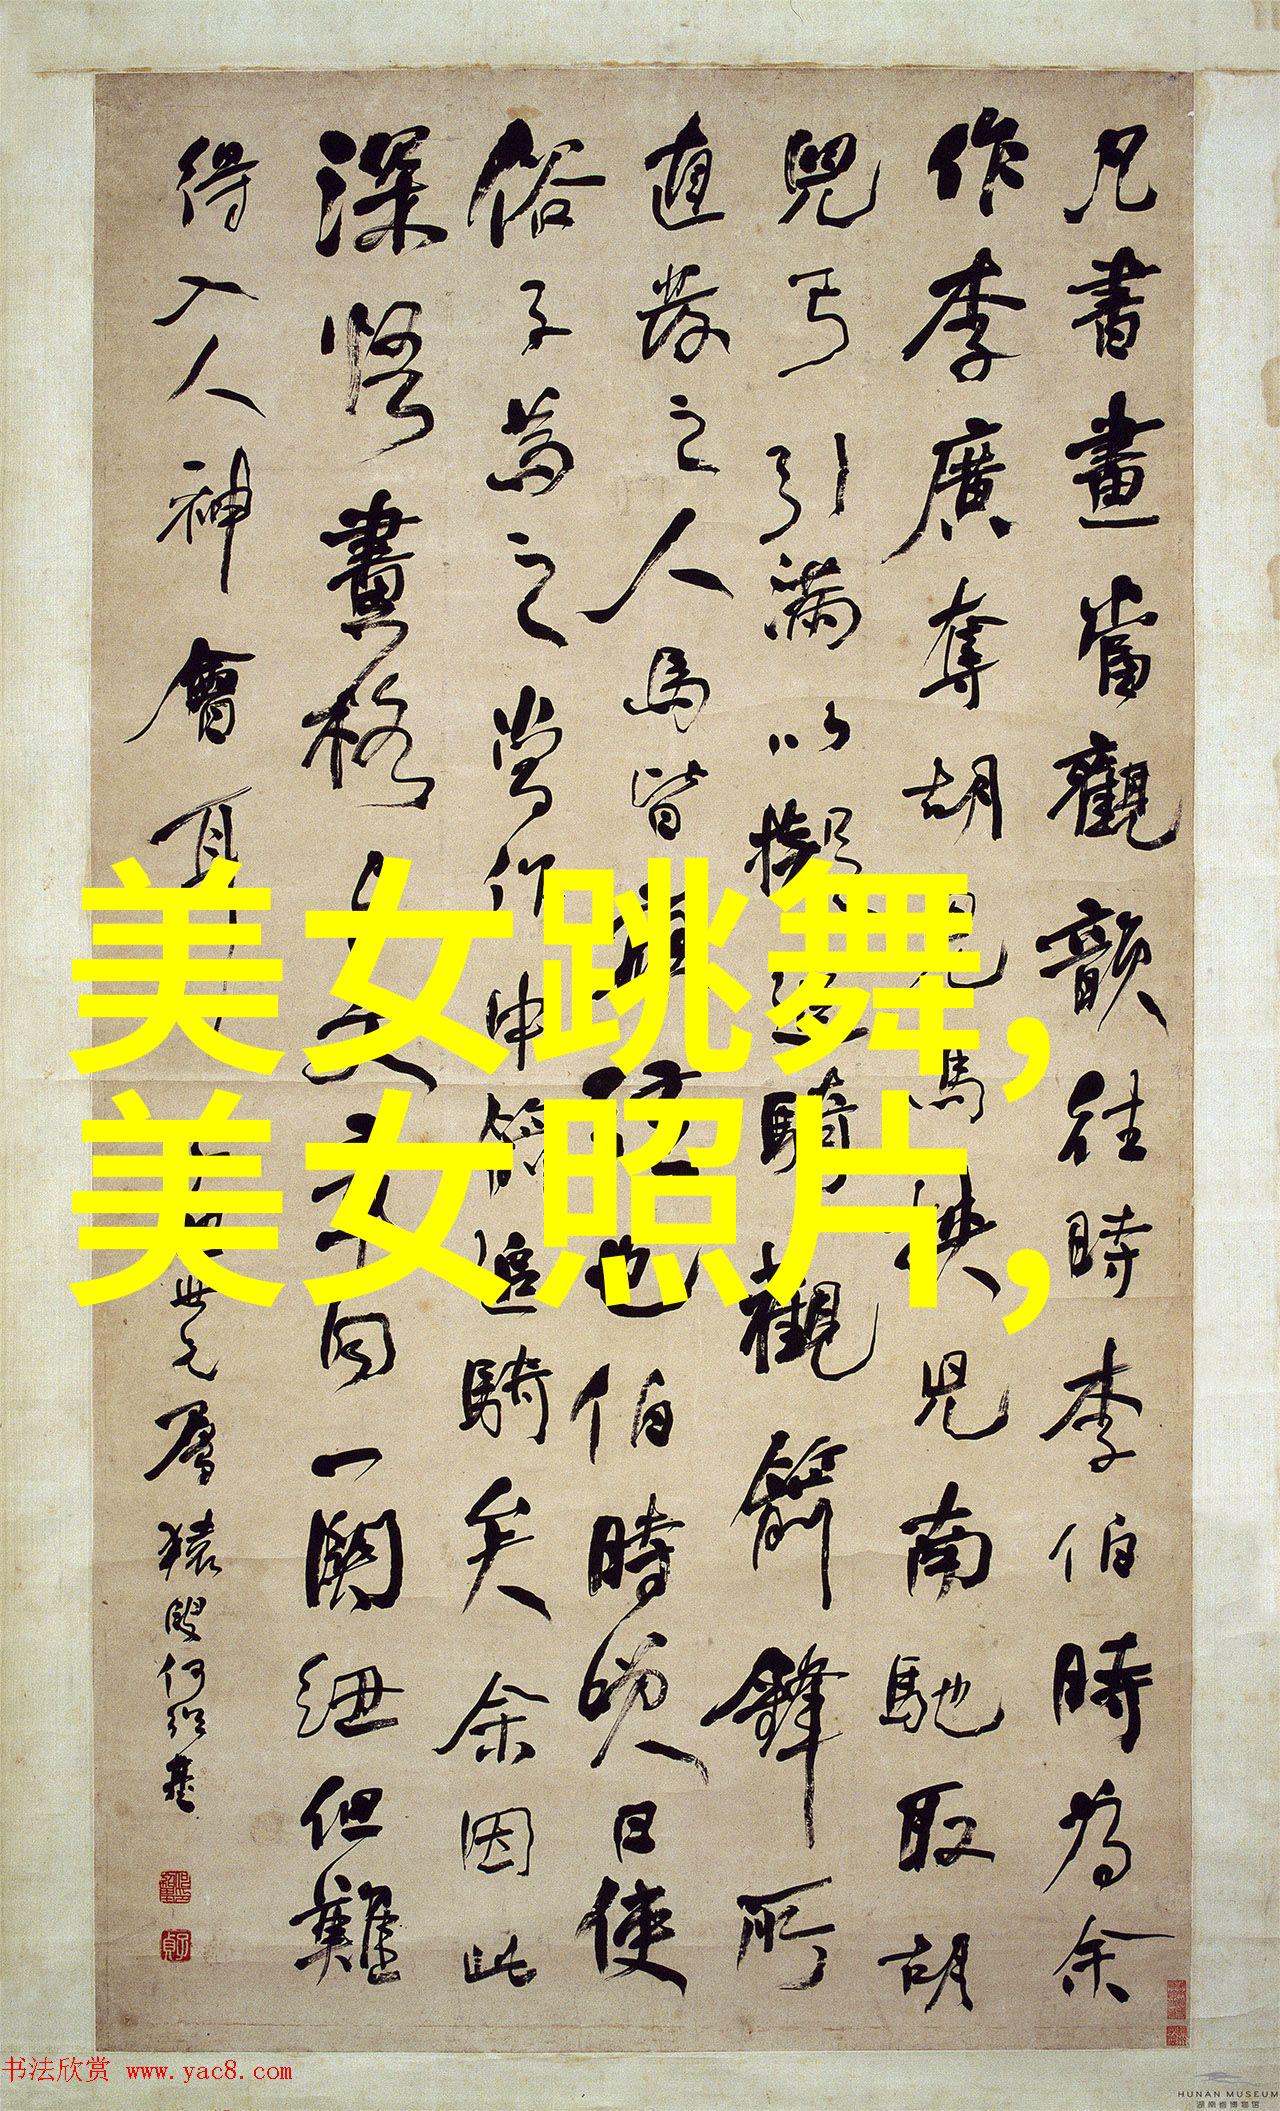 凡書畫當觀韻往時李伯時為余
作李廣奪胡兒馬挾兒南馳取胡
兒弓引滿以擬追騎觀箭鋒所
直發之人馬皆應弦也伯時笑曰使
俗子為之當作中箭追騎矣余因此
深悟畫格
向一關紐但難
得入人神會耳
世兄屬 猿叟何紹基
美女跳舞,
美女照片,
书法欣赏 www.yac8.com
HUNAN MUSEUM
湖南省博物馆